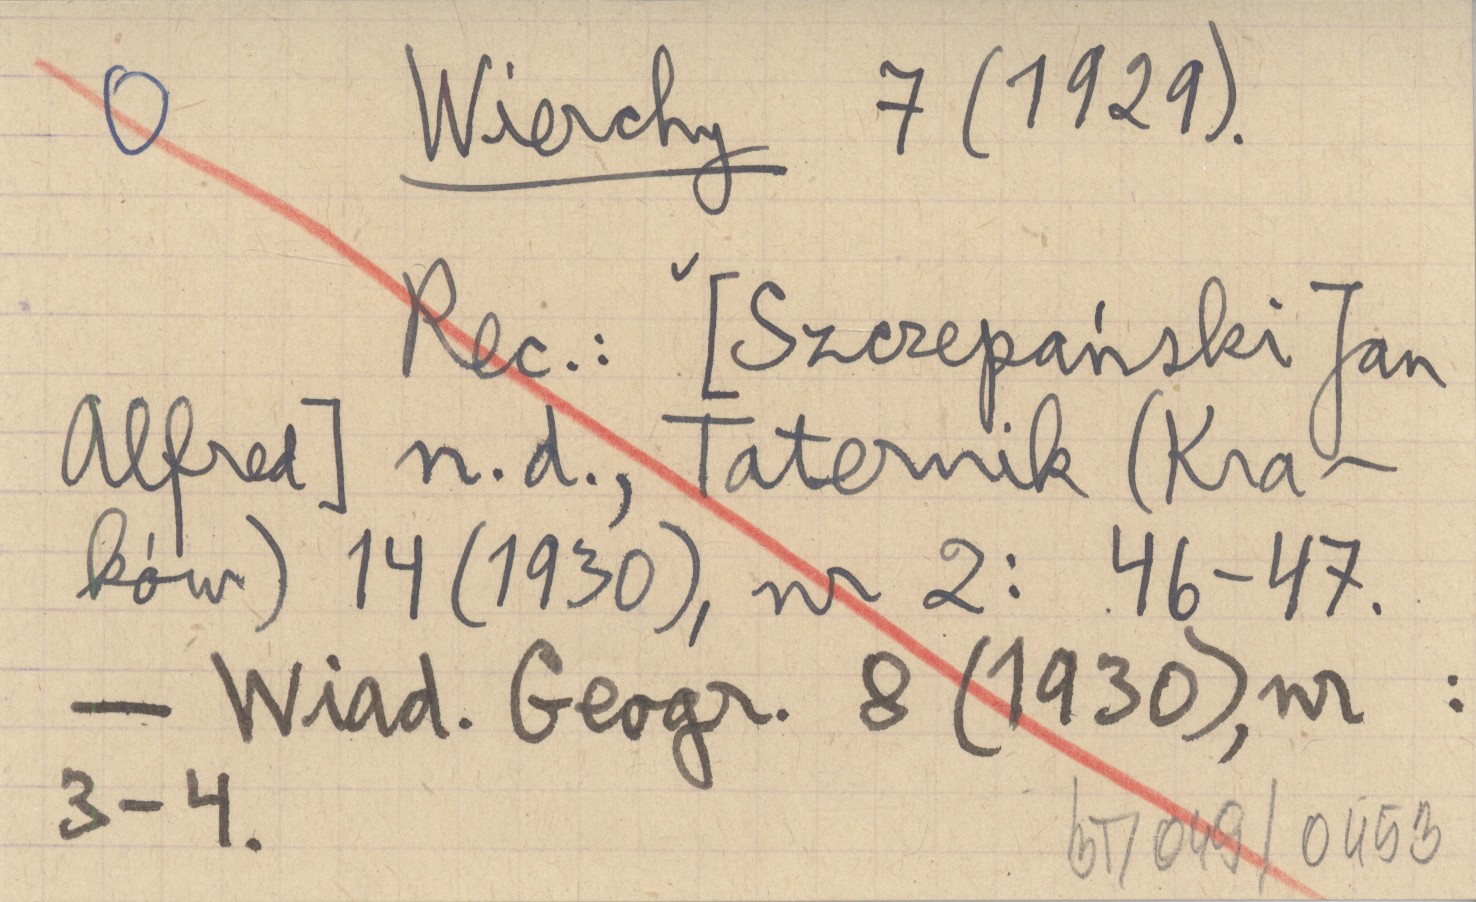 O Wierchy 7 (1929).
Rec.: ˇ[Szczepański Jan
Alfred] n.d., Taternik (Kra-
ków) 14 (1930), nr 2: 46-47.
— Wiad. Geogr. 8 (1930), nr :
3-4.
bT/049/0453